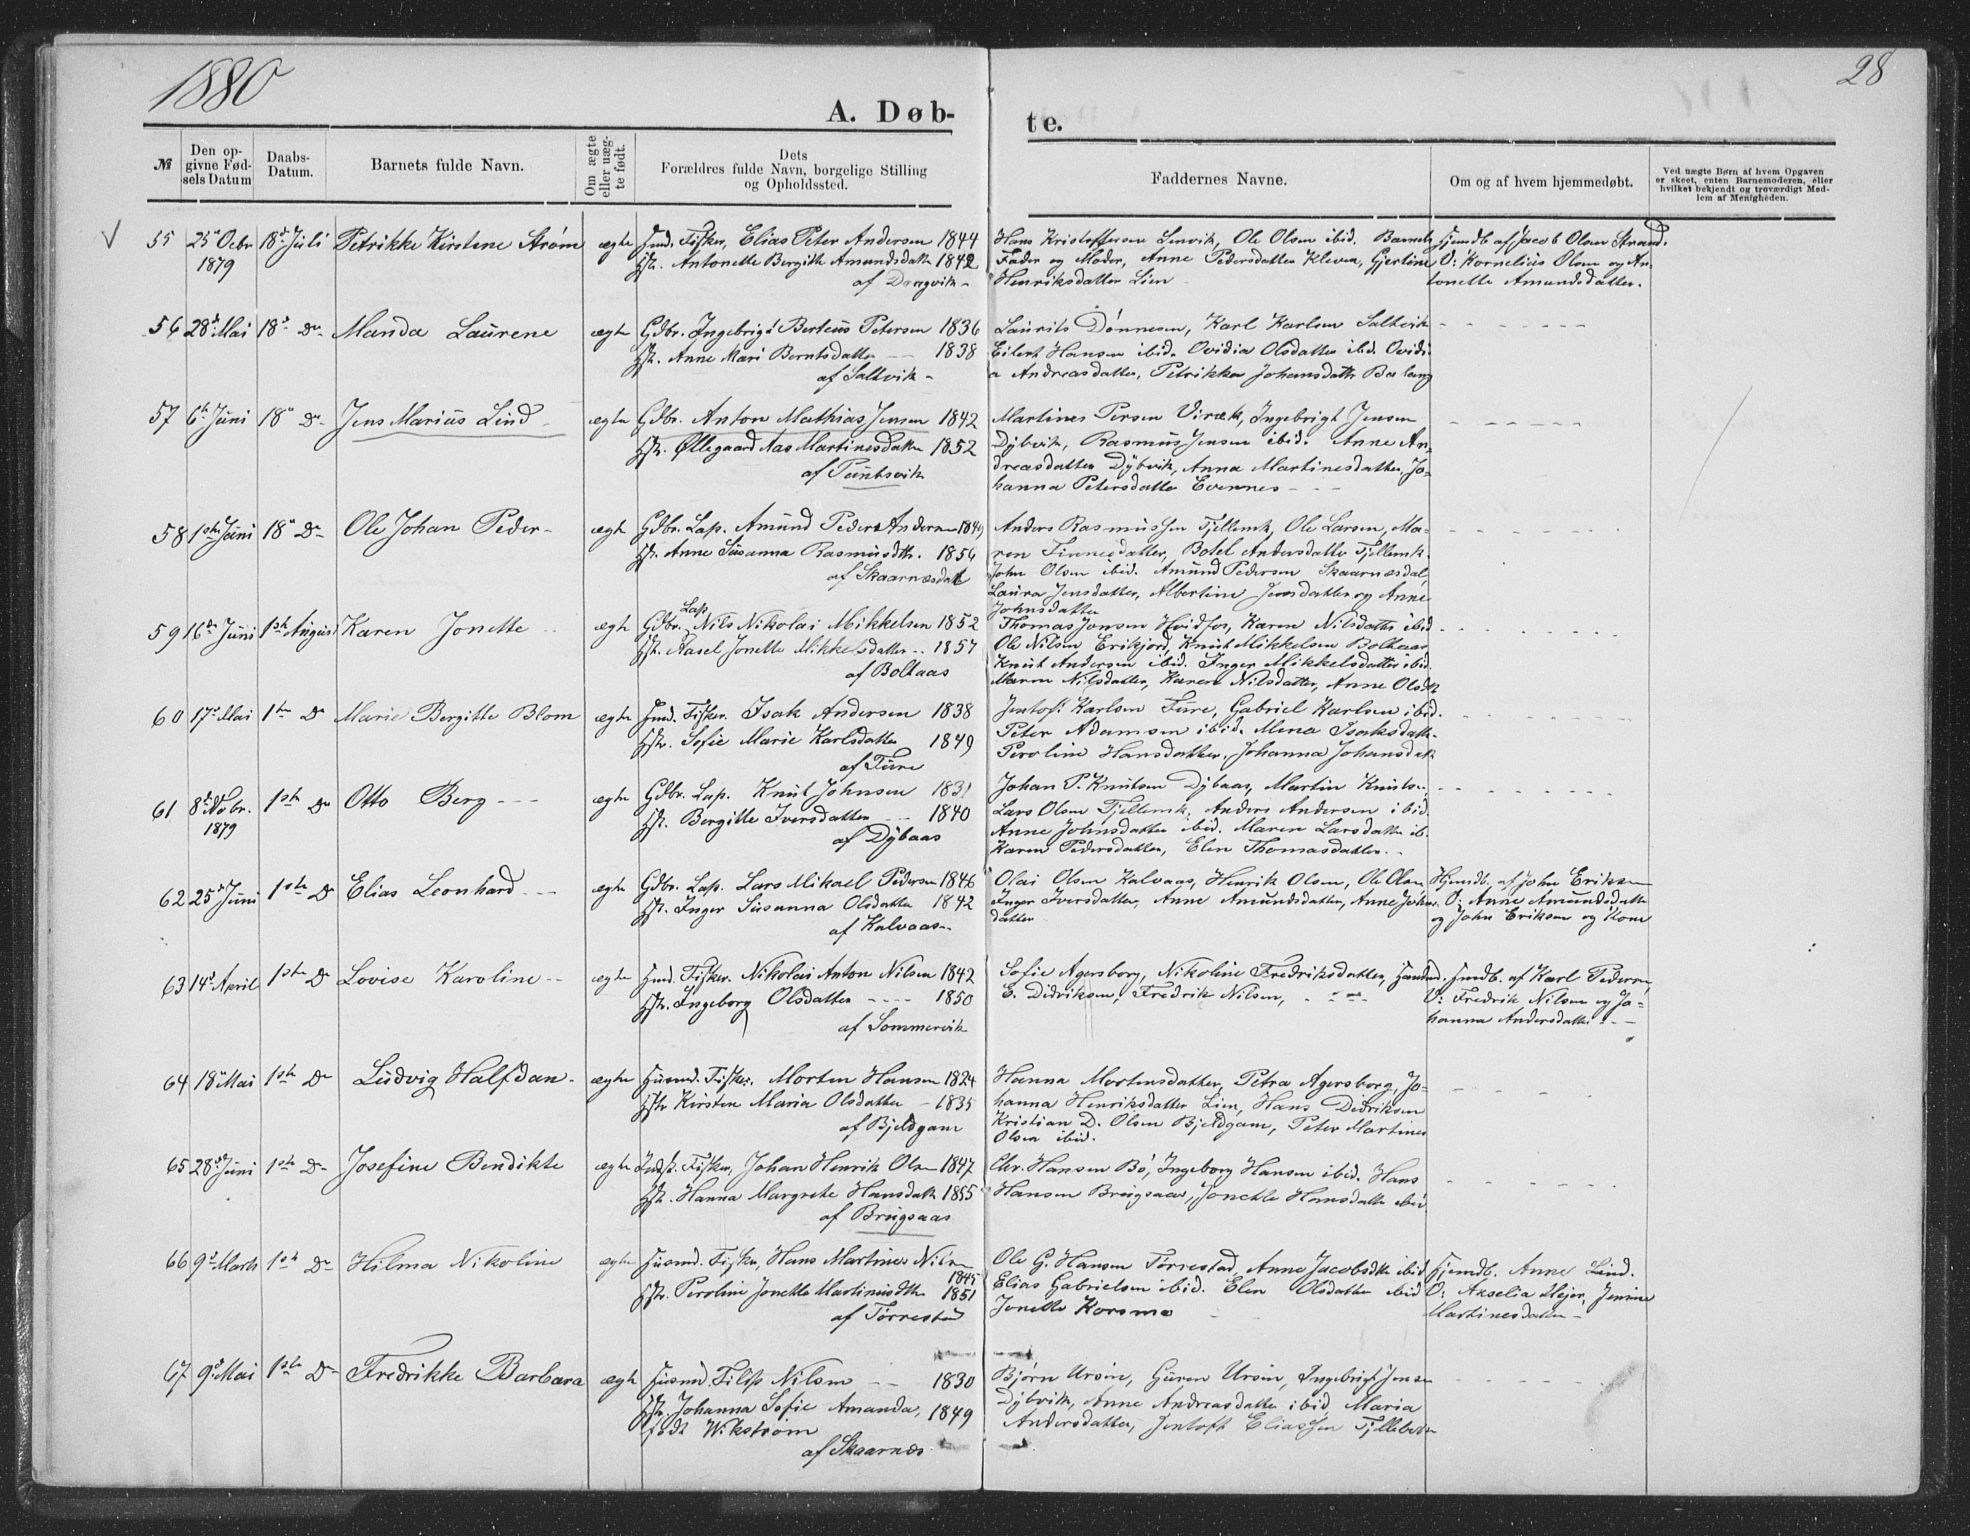 1880
28
A. Døb-
te.
№
Den op-
givne Fød-
sels Datum
Daabs-
Datum.
Barnets fulde Navn.
Om ægte
eller uæg-
te født.
Dets
Forældres fulde Navn, borgelige Stilling
og Opholdssted.
Faddernes Navne.
Om og af hvem hjemmedøbt.
Ved uægte Børn af hvem Opgaven
er skeet, enten Barnemoderen, eller
hvilket bekjendt og troværdigt Med-
lem af Menigheden.
55 25 Octbr 18 Juli Petrikke Kirstine Strøm ægte Fisker, Elias Peter Andersen 1844
1879 Antonette Bergitte Amundsdatt 1842
af Dragvik
Hans Kristoffersen Lenvik, Ole Olsen ibid. Barnets
Fader og Moder, Anne Pedersdatter Kleven, Gjertine
Henriksdatter Lien
Hjemdb af Jacob Olsen Strand.
V: Kornelius Olsen og An-
tonette Amundsdatter.
56 28 Mai 18 Do Manda Laurene ægte Gdbr. Ingebrigt Berteus Petersen 1836
Hst. Anne Mari Berntsdatter 1838
af Saltvik
Laurits Dønnesen, Karl Karlsen Saltvik
Eilert Hansen ibid. Ovidia Olsdatter ibid. Ovidi-
a Andreasdatter, Petrikka Johansdattr
57 6te Juni 18 Do Jens Marius Lind ægte Gdbr. Anton Mathias Jensen 1842
Hst. Øllegaard Aas Martinesdatter 1852
af
Martines Persen Viræk, Ingebrigt Jensen
Dybvik, Rasmus Jensen ibid. Anne An-
dreasdatter Dybvik, Anna Martinesdatter, Jo-
hanna Petersdatter Evennes
58 1ste Juni 18 Do Ole Johan Peder ægte Gdbr. Lap. Amund Peder Andersen
Hst. Anne Susanna Rasmusdtr. 1856
af Skaarnæsdal
Anders Rasmussen Fjellemk, Ole Larsen, Ma-
ren Finnesdatter, Botel Andersdatter Fjellemk.
John Olsen ibid. Amund Pedersen Skaarnæsdal,
Laura Jensdatter, Albertine Jensdatter og Anne
Johnsdatter
59 16de Juni 1ste August Karen Jonette ægte Gdbr. Lap Nils Nikolai Mikkelsen 1852
Hst. Aasel Jonette Mikkelsdatter 1857
af Boltaas
Thomas Jonsen Hvidfos, Karen Nilsdatter ibid
Ole Nilsen Erikjord, Knut Mikkelsen Boltaas
Knut Andersen ibid. Inger Mikkelsdatter ibid.
Maren Nilsdatter, Karen Nilsdatter, Anne Olsdtr
60 17 Mai 1ste Do Marie Bergitte Blom ægte Fisker. Isak Andersen 1838
Hst. Sofie Marie Karlsdatter 1849
af Fure
Jentoft Karlsen Fure, Gabriel Karlsen ibid.
Peter Adamsen ibid. Mina Isaksdatt
Peroline Hansdatter, Johanna Johansdatt
61 8 Nobr. 1ste Do Otto Berg ægte Gdbr. Lap. Knut Johnsen 1831
1879 Hst. Bergitte Iversdatter 1840
af Dybaas
Johan P. Knutsen Dybaas, Martin Knutsen
Lars Olsen Fjellemk, Anders Andersen ibid
Anne Johnsdatter ibid. Maren Larsdatter ib.
Karen Pedersdatter, Elen Thomasdatter.
62 25 Juni 1ste Do Elias Leonhard ægte Gdbr. Lap. Lars Mikael Pedersen 1846
Hst. Inger Susanna Olsdatter 1842
af Kalvaas
Olai Olsen Kalvaas, Henrik Olsen, Ole Olsen
Inger Iversdatter, Anne Amundsdatter, Anne Johns-
datter
Hjemdb. af John Eriksen
V: Anne Amundsdatter
og John Eriksen og Kone
63 14 April 1ste Do Lovise Karoline ægte Fisker. Nikolai Anton Nilsen 1842
Hst. Ingeborg Olsdatter 1850
af Sommervik
Sofie Agersborg, Nikoline Fredriksdatter,
E. Didriksen, Fredrik Nilsen,
Hjmdb. af Karl Pedersen,
V: Fredrik Nilsen og Jo-
hanna Andersdatter
64 18 Mai 1ste Do Ludvig Halfdan ægte Husmd. Fisker. Morten Hansen 1824
Hstr Kirsten Maria Olsdatter 1835
af Bjeldgam
Hanna Mortensdatter, Petra Agersborg, Jo-
hanna Henriksdatter Lien, Hans Didriksen
Kristian D. Olsen Bjeldgam, Peter Martines
Olsen ibid.
65 28 Juni 1ste Do Josefine Bendikte ægte Indst. Fisker, Johan Henrik Olsen 1847
Hst. Hanna Margrete Hansdatt 1855
af Brugsaas
Chr. Hansen Bø, Ingeborg Hansen ibid. Hans
Hansen Brugsaas, Jonette Hansdatter ibid
66 9 Marts 1ste Do Hilma Nikoline ægte Husmd. Fisker, Hans Martines Nilsen
1845
Hst. Peroline Jonette Martinusdtr 1851
af Tørrestad
Ole G. Hansen Tørrestad, Anne Jacobsdtr ibid
Elias Gabrielsen ibid. Elen Olsdatter ibid
Jonette Korsmo
Hjemdb. Anne Lind.
V: Axselia Mejer, Jenine
Martinesdatter
67 9 Mai 1ste Do Fredrikke Barbara ægte Husmd. Filip Nilsen 1830
Hst. Johanna Sofie Amanda, 1849
født Wikstrøm
af Skaarnæs
Bjørn Ursin, Guren Ursin, Ingebrigt Jensen
Dybvik, Anne Andreasdatter ibid, Maria
Andersdatter, Jentoft Eliassen